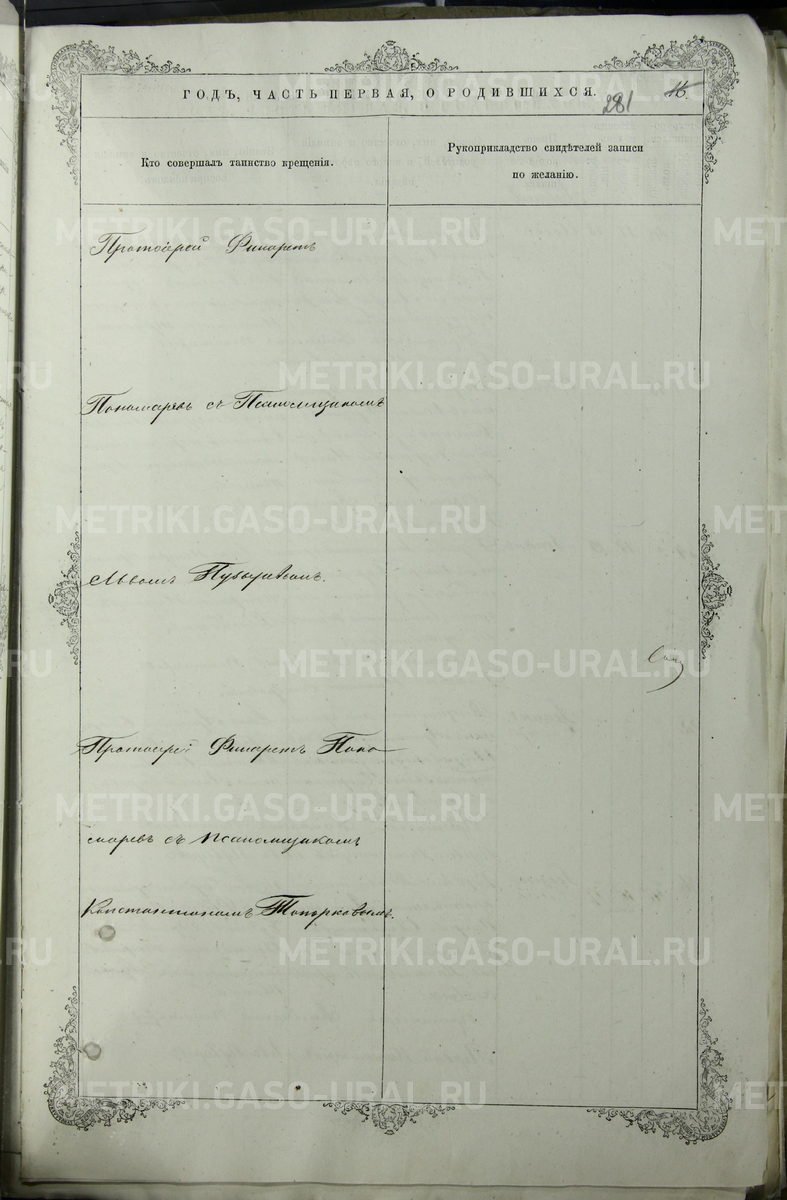 ГОДЪ, ЧАСТЬ ПЕРВАЯ, О РОДИВШИХСЯ.
281
16.
Кто совершалъ таинство крещенія.
Рукоприкладство свидѣтелей записи
по желанію.
Протоіерей Филаретъ
Пономаревъ съ Псаломщикомъ
Львомъ
Протоіерей Филаретъ Поно
маревъ съ псаломщикомъ
Константиномъ Топорковымъ.
METRIKI.GASO-URAL.RU